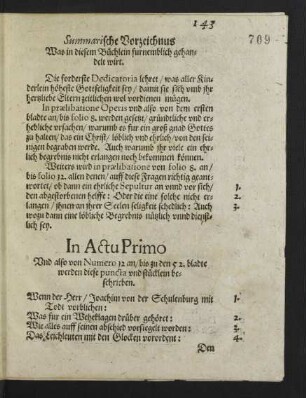 143
709
Summarische Vorzeichnus
Was in diesem Büchlein furnemblich gehan-
delt wirt.
Die forderste Dedicatoria lehret / was aller Kin-
derlein höheste Gottseligkeit sey / damit sie sich vnd ihr
hertzliebe Eltern zeitlichen wol vordienen mügen.
In prælibatione Operis vnd also von dem ersten
bladte an / bis folio 8. werden gesetzt / gründtliche vnd er-
hebliche vrsachen / warumb es fur ein groß gnad Gottes
zu halten / das ein Christ / löblich vnd ehrlich / von den sei-
nigen begraben werde. Auch warumb ihr viele ein ehr-
lich begrebnis nicht erlangen noch bekommen können.
Weiters wird in prælibatione von folio 8. an /
bis folio 12. allen denen / auff diese Fragen richtig geant-
wortet / ob dann ein ehrliche Sepultur an vnnd vor sich / 1.
den abgestorbenen helffe: Oder die eine solche nicht er- 2.
langen / ihnen an ihrer Seelen seligkeit schedlich: Auch 3.
wozu dann eine löbliche Begrebnis nützlich vnnd dienst-
lich sey.
In Actu Primo
Vnd also von Numero 12 an / bis zu den 52. bladte
werden diese puncta vnd stücklein be-
schrieben.
Wenn der Herr / Joachim von der Schulenburg mit 1.
Todt vorblichen:
Was fur ein Wehklagen drüber gehöret: 2.
Wie alles auff seinen abschied vorsiegelt worden: 3.
Das Leichleuten mit den Glocken vorordent: 4.
Den